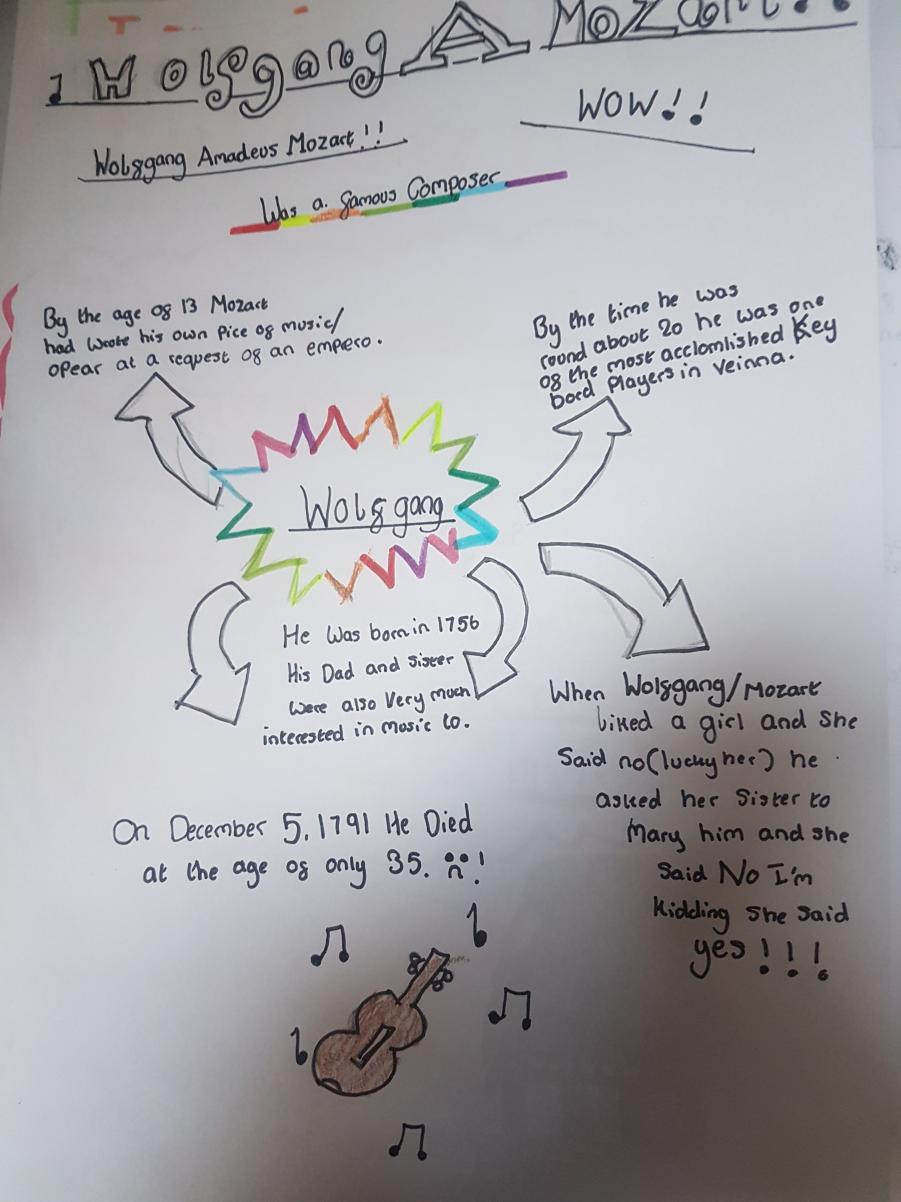 Wolfgang A Mozart!!
WOW!!
Wolfgang Amadeus Mozart!!
Was a famous Composer
By the age of 13 Mozart
had wrote his own Pice of music/
opear at a request of an empero.
By the time he was
round about 20 he was one
of the most acclomlished Key
bord Players in Veinna.
Wolfgang
He Was born in 1756
His Dad and sister
were also Very much
interested in music to.
When Wolfgang/Mozart
liked a girl and She
Said no(lucky her) he
asked her Sister to
Mary him and she
Said No I'm
Kidding She Said
yes!!!
On December 5, 1791 He Died
at the age of only 35. :(!